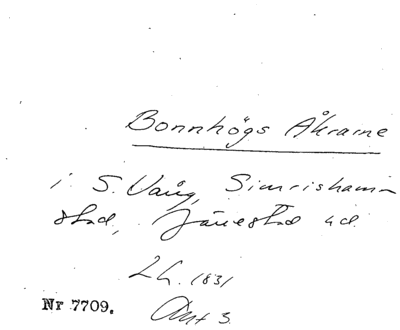 Bonnhögs Åkrarne
i S. Vång, Simrishamn
stad, Järrestad hd
L h. 1831
Akt 3.
Nr 7709.